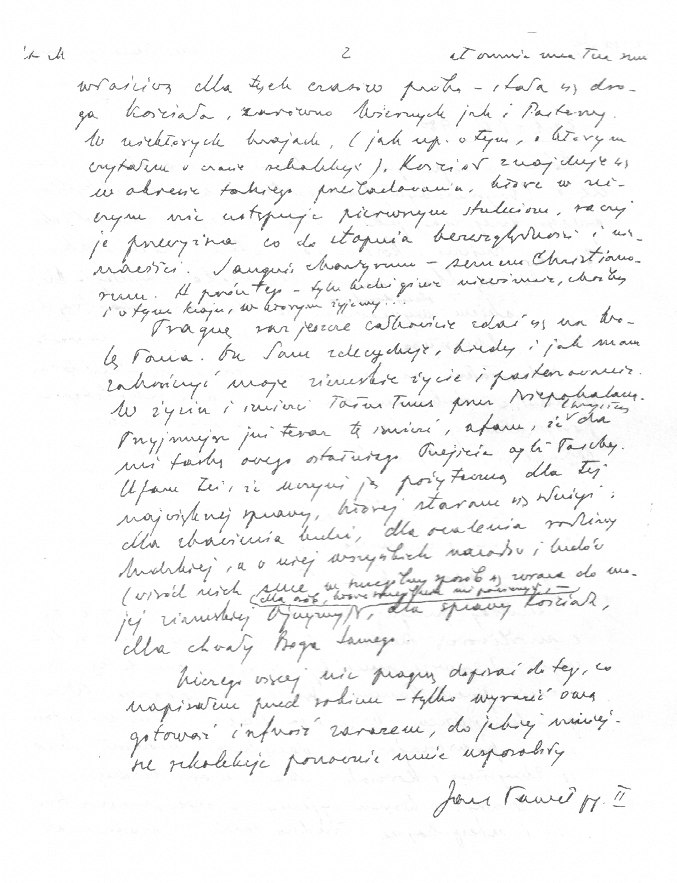 2
et omnia mea Tua sunt
właściwą dla tych czasów próbą – stała się dro-
ga Kościoła, zarówno Wiernych jak i Pasterzy.
W niektórych krajach, (jak np. o tym, o którym
czytałem w czasie rekolekcji), Kościół znajduje się
w okresie takiego prześladowania, które w ni-
czym nie ustępuje pierwszym stuleciom, raczej
je przewyższa co do stopnia bezwzględności i nie-
nawiści. Sanguis Martyrum – semen Christiano-
rum. A prócz tego – tylu ludzi ginie niewinnie, choćby
i w tym kraju, w którym żyjemy...
Pragnę raz jeszcze całkowicie zdać się na wo-
lę Pana. On Sam zdecyduje, kiedy i jak mam
zakończyć moje ziemskie życie i pasterzowanie.
W życiu i śmierci Totus Tuus przez Niepokalaną.
Przyjmując już teraz tę śmierć, ufam, że Chrystus da
mi łaskę owego ostatniego Przejścia czyli Paschy.
Ufam też, że uczyni ją pożyteczną dla tej
największej sprawy, której staram się służyć:
dla zbawienia ludzi, dla ocalenia rodziny
ludzkiej, a w niej wszystkich narodów i ludów
(wśród nich serce w szczególny sposób się zwraca do mo-
jej ziemskiej Ojczyzny), dla osób, które szczególnie mi powierzył, – dla sprawy Kościoła,
dla chwały Boga Samego.
Niczego więcej nie pragnę dopisać do tego, co
napisałem przed rokiem – tylko wyrazić ową
gotowość i ufność zarazem, do jakiej niniej-
sze rekolekcje ponownie mnie usposobiły
Jan Paweł pp. II